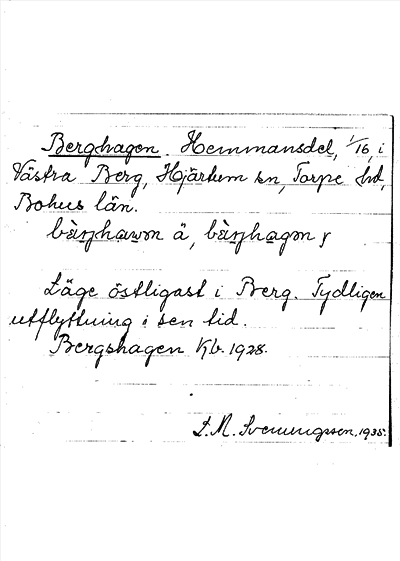 Berghagen. Hemmansdel, 1/16, i
Västra Berg, Hjärtum sn, Torpe hd,
Bohus län.
bàrjhawən ä, bàrjhagən y
Läge östligast i Berg. Tydligen
utflyttning i sen tid.
Bergshagen Kb. 1928.
S. M. Svenungsson, 1935.